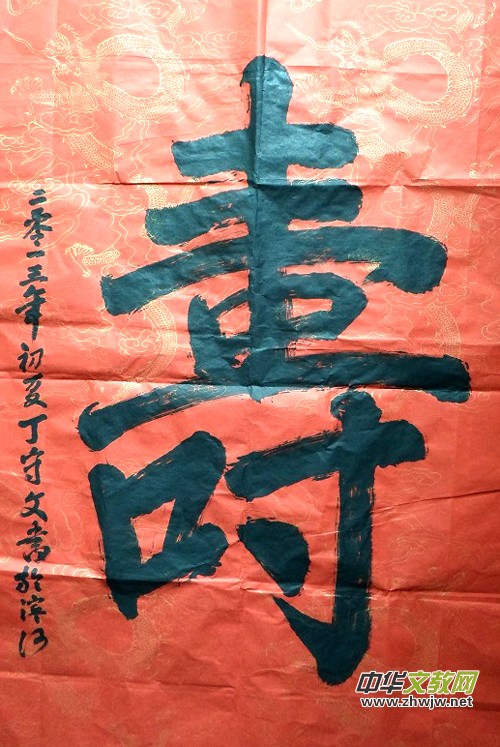 壽
二零一三年初夏丁守文書於滨河
中华文教网
www.zhwjw.net